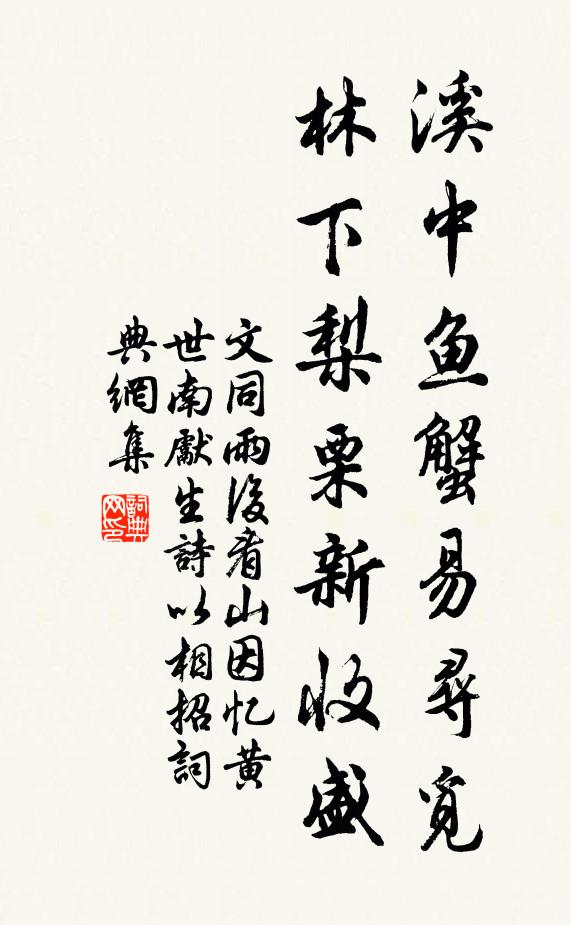 溪中鱼蟹易尋覓
林下梨栗新收盛
文同雨後看山因忆黄
世南獻生詩以相招詞
典網集
詞典网印